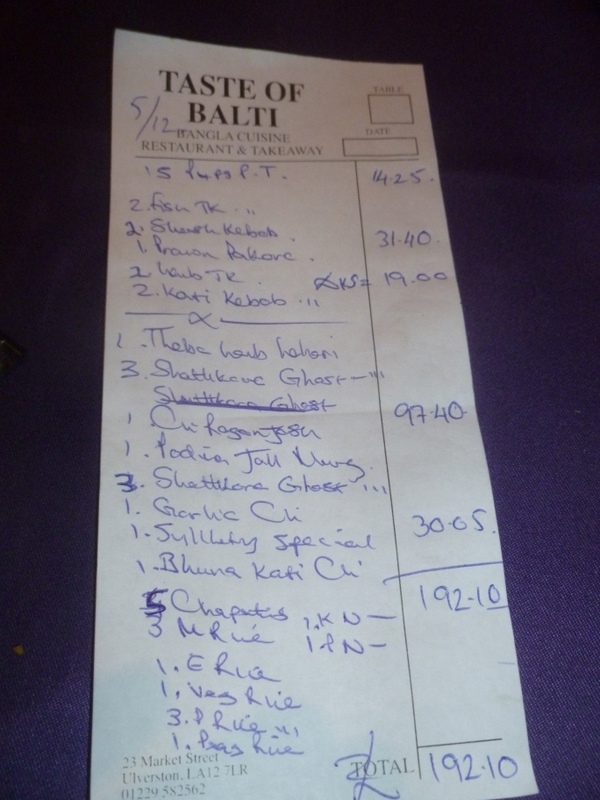 TASTE OF
BALTI
5/12
BANGLA CUISINE
RESTAURANT & TAKEAWAY
TABLE
DATE
15 Paps P.T. 14.25.
2. Fish TK "
2. Sheesh Kebob. 31.40.
1. Prawn Pakora.
2 Lamb TK DKS= 19.00
2. Kati Kebob "
1. Lamb
3. Shattkava Ghost - "
Shattkora Ghost 97.40
1 Ch Rogan Josh
1. Jall
3. Shattkora Ghost "
1. Garlic Ch 30.05.
1. Special
1. Bhuna Kati Ch
192.10
5 Chapatis 1. K N -
3 M Rice 1 P N -
1. E Rice
1. Veg Rice
3. P Rice "
1. Peas Rice
23 Market Street
Ulverston, LA12 7LR
01229 582562
TOTAL 192.10